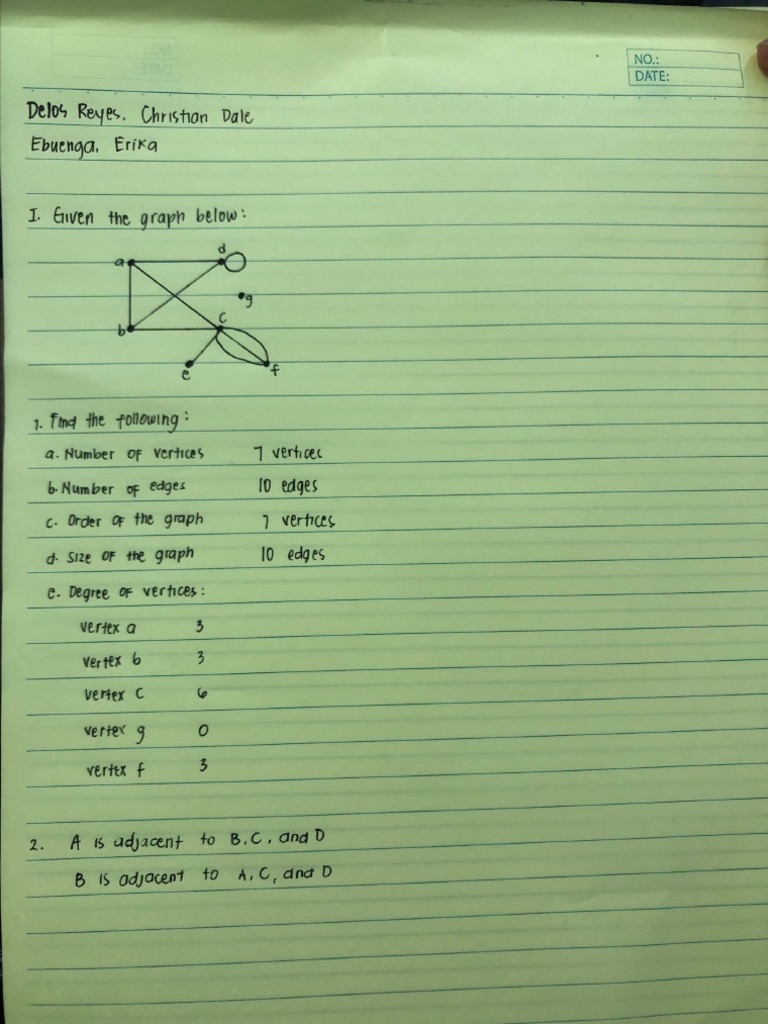 NO.:
DATE:
Delos Reyes, Christian Dale
Ebuenga, Erika
I. Given the graph below:
d
a
g
b
c
e
f
1. Find the following:
a. Number of vertices 7 vertices
b. Number of edges 10 edges
c. Order of the graph 7 vertices
d. Size of the graph 10 edges
e. Degree of vertices:
vertex a 3
vertex b 3
vertex c 6
vertex g 0
vertex f 3
2. A is adjacent to B, C, and D
B is adjacent to A, C, and D